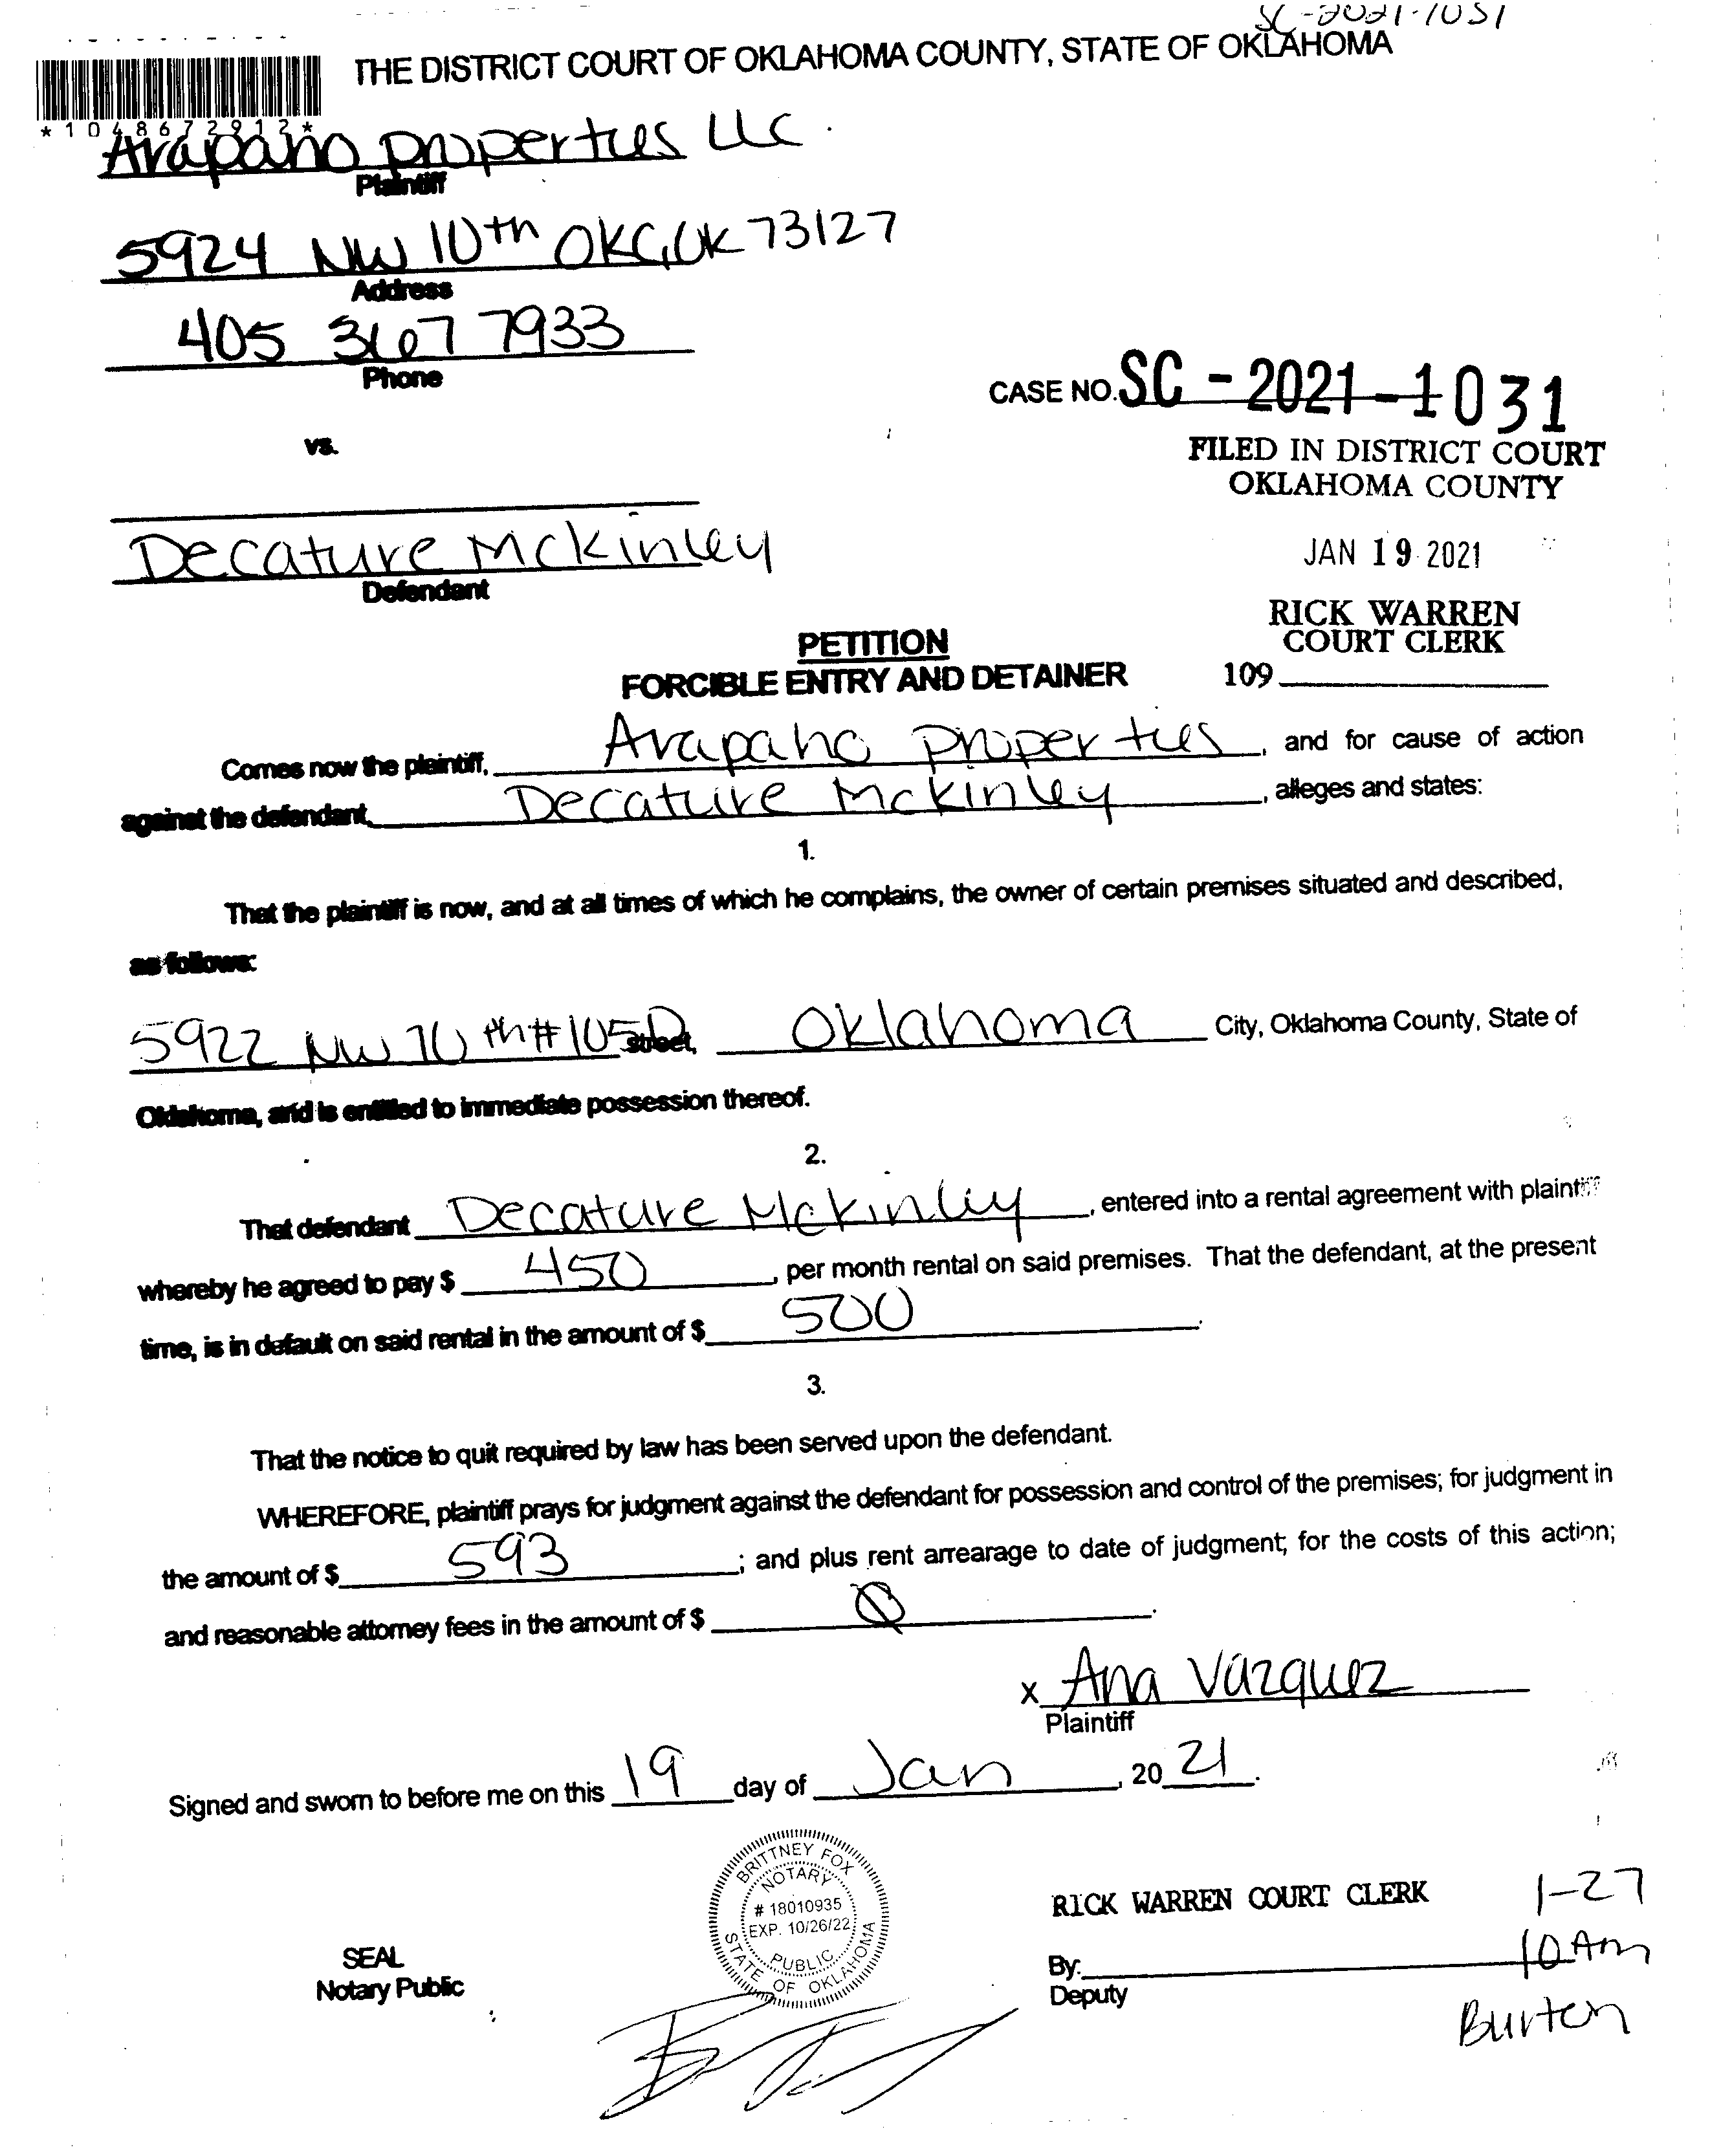 SC-2021-1031
THE DISTRICT COURT OF OKLAHOMA COUNTY, STATE OF OKLAHOMA
*1048672912*
Arapaho properties LLC.
Plaintiff
5924 NW 10th OKC, OK 73127
Address
405 367 7933
Phone
CASE NO. SC - 2021 - 1031
vs.
FILED IN DISTRICT COURT
OKLAHOMA COUNTY
Decature Mckinley
Defendant
JAN 19 2021
RICK WARREN
COURT CLERK
109
PETITION
FORCIBLE ENTRY AND DETAINER
Comes now the plaintiff, Arapaho properties, and for cause of action
against the defendant, Decature Mckinley, alleges and states:
1.
That the plaintiff is now, and at all times of which he complains, the owner of certain premises situated and described,
as follows:
5922 NW 10th #105D street, Oklahoma City, Oklahoma County, State of
Oklahoma, and is entitled to immediate possession thereof.
2.
That defendant Decature Mckinley, entered into a rental agreement with plaintiff
whereby he agreed to pay $ 450, per month rental on said premises. That the defendant, at the present
time, is in default on said rental in the amount of $ 500.
3.
That the notice to quit required by law has been served upon the defendant.
WHEREFORE, plaintiff prays for judgment against the defendant for possession and control of the premises; for judgment in
the amount of $ 593; and plus rent arrearage to date of judgment; for the costs of this action;
and reasonable attorney fees in the amount of $ 0.
x Ana Vazquez
Plaintiff
Signed and sworn to before me on this 19 day of Jan, 20 21.
BRITTNEY FOX
NOTARY
# 18010935
EXP. 10/26/22
PUBLIC
STATE OF OKLAHOMA
SEAL
Notary Public
RICK WARREN COURT CLERK
By:
Deputy
1-27
10 Am
Burton